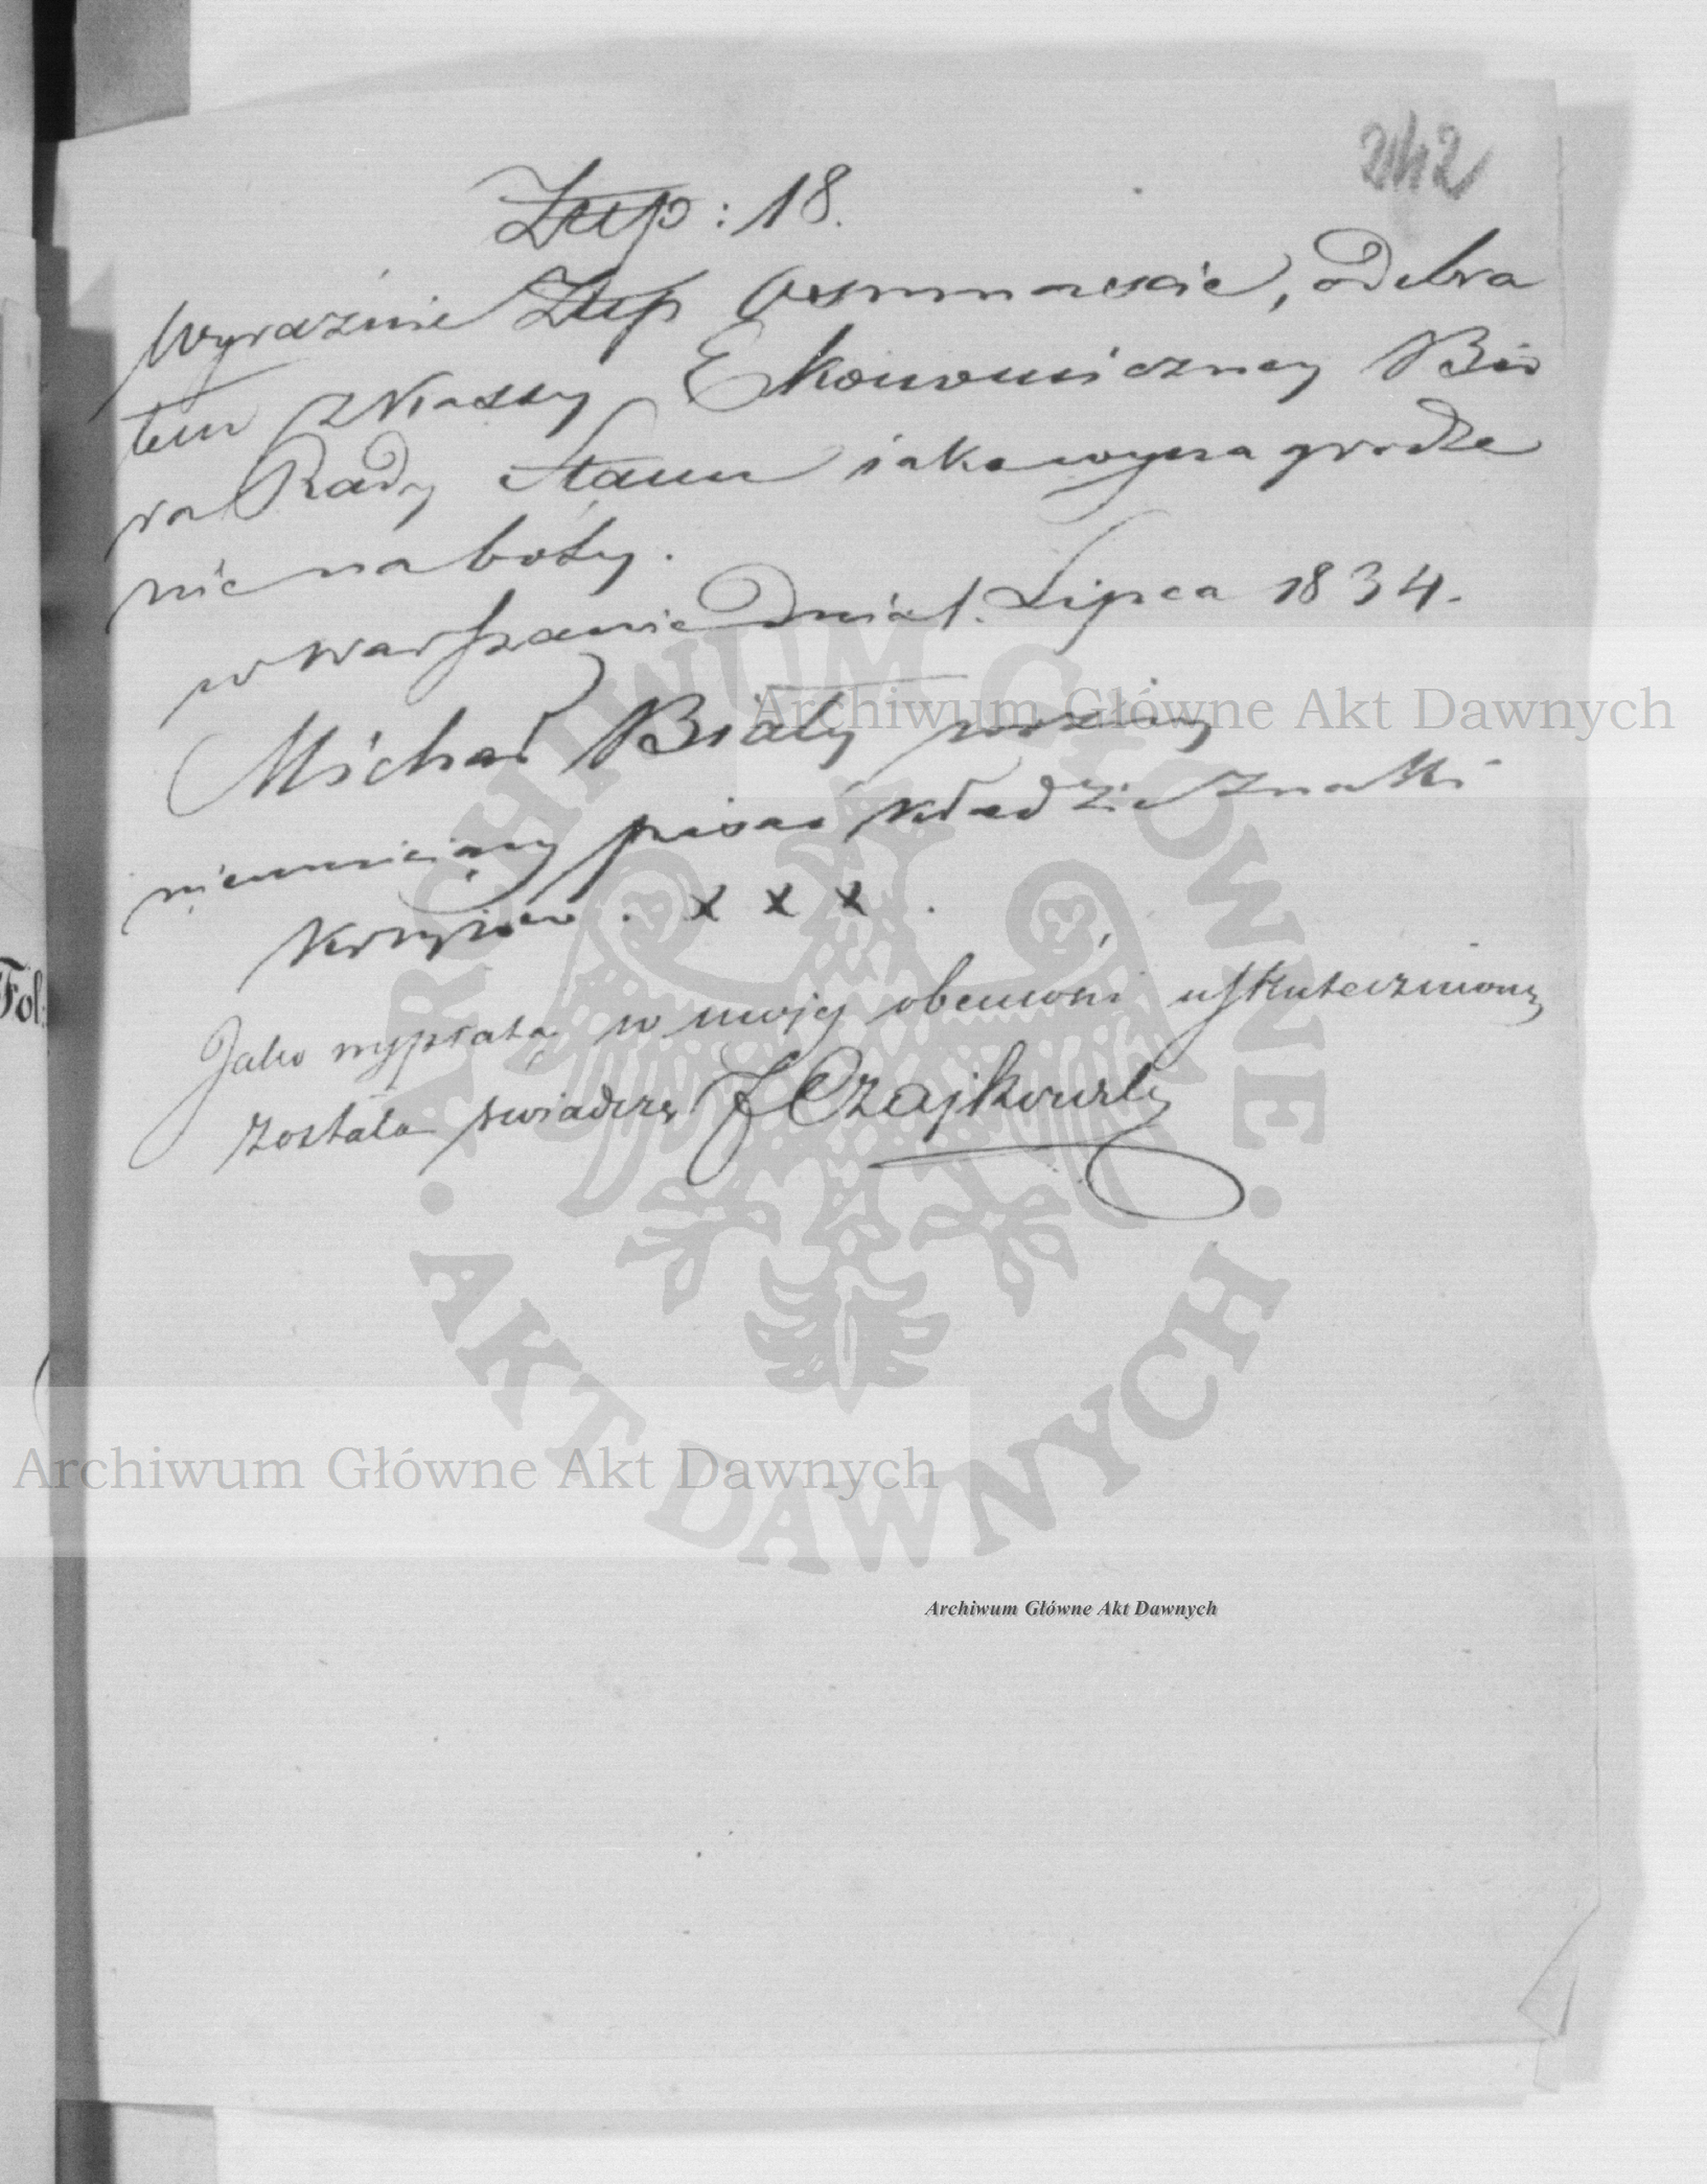 242
Złłp: 18.
Wyraźnie Złłp Osmnaście, odebra
łem z Kassy Ekonomiczney Bió
ra Rady Stanu iako wynagrodze
nie na boty.
w Warszawie Dnia 1. Lipca 1834.
Michał Biały woźny
nieumieiący pisać kładzie znaki
Krzyżów. x x x.
Jako wypłata w mojej obecności uskuteczniona
została świadczę J Czajkowski
Fol:
Archiwum Główne Akt Dawnych
Archiwum Główne Akt Dawnych
ARCHIWUM GŁÓWNE · AKT DAWNYCH ·
Archiwum Główne Akt Dawnych